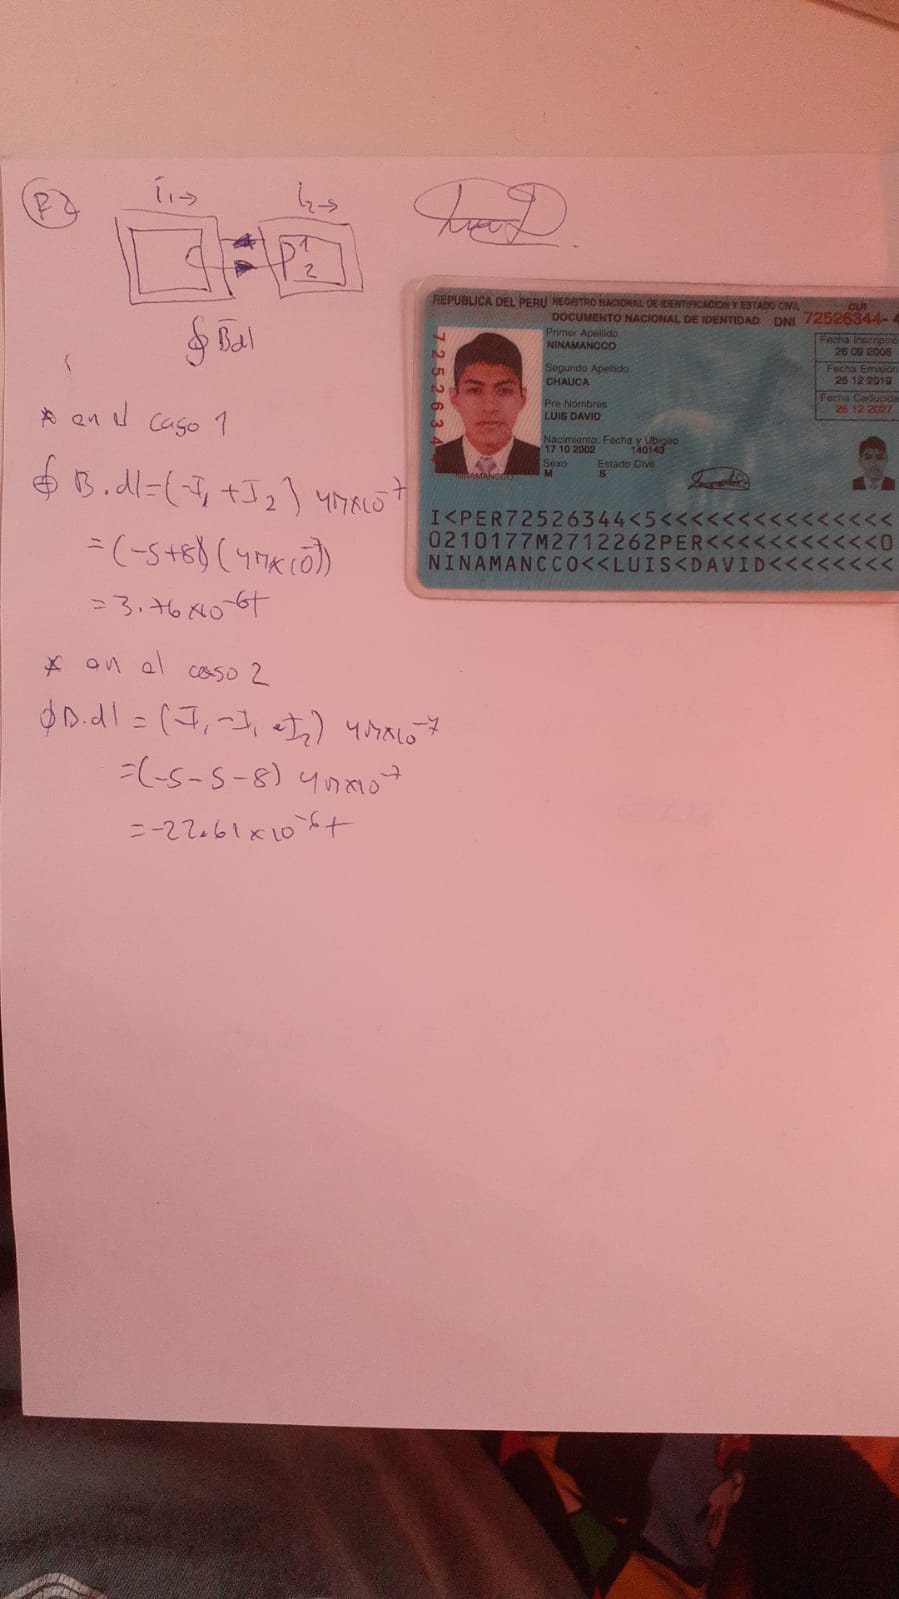 P2
i₁→ i₂→
1
2
∮ B̄dl
* en el caso 1
∮ B.dl=(-I₁+I₂) 4π×10⁻⁷
=(-5+8)(4π×10⁻⁷)
=3.76×10⁻⁶t
* en el caso 2
∮B.dl=(-I₁-I₁-I₂) 4π×10⁻⁷
=(-5-5-8) 4π×10⁻⁷
=-22.61×10⁻⁶t
REPUBLICA DEL PERU REGISTRO NACIONAL DE IDENTIFICACION Y ESTADO CIVIL CUI
DOCUMENTO NACIONAL DE IDENTIDAD DNI 72526344-4
72526344
Primer Apellido
NINAMANCCO
Segundo Apellido
CHAUCA
Pre Nombres
LUIS DAVID
Nacimiento: Fecha y Ubigeo
17 10 2002 140143
Sexo Estado Civil
M S
Fecha Inscripció
26 09 2008
Fecha Emisión
26 12 2019
Fecha Caducida
26 12 2027
NINAMANCCO
I<PER72526344<5<<<<<<<<<<<<<<<
0210177M2712262PER<<<<<<<<<<<0
NINAMANCCO<<LUIS<DAVID<<<<<<<<